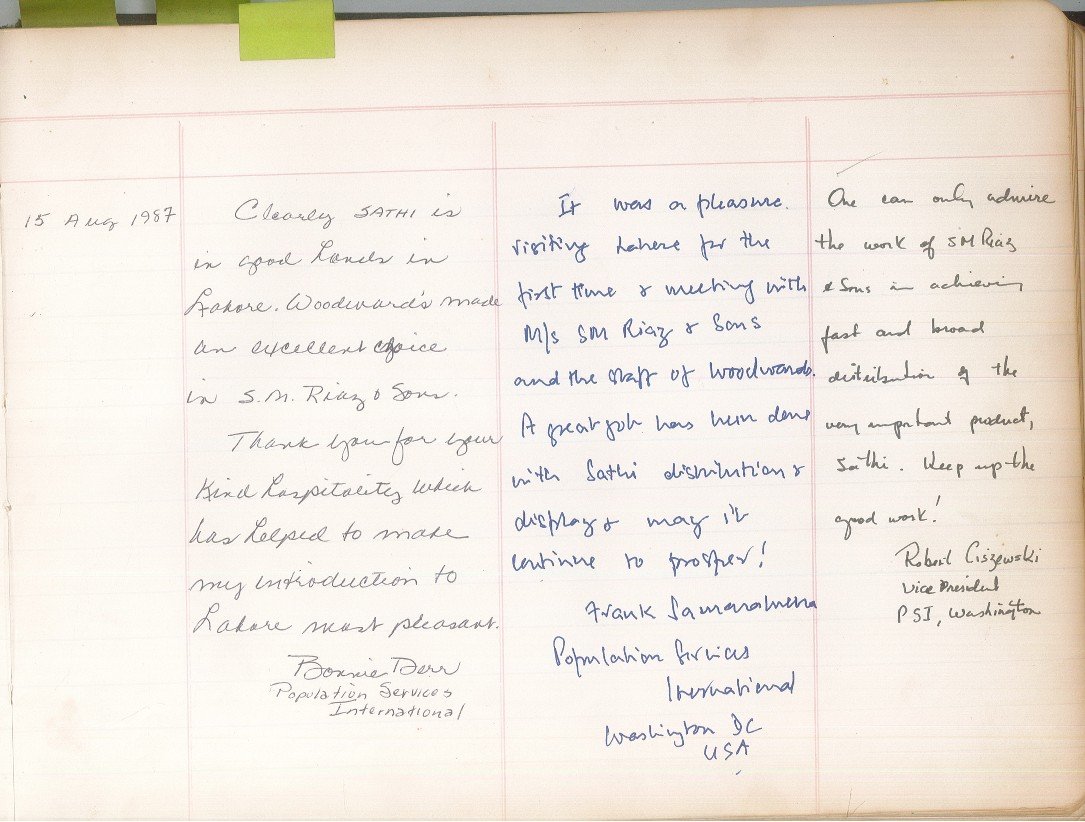 15 Aug 1987
Clearly SATHI is
in good hands in
Lahore. Woodward's made
an excellent choice
in S.M. Riaz & Sons.
Thank you for your
kind hospitality which
has helped to make
my introduction to
Lahore most pleasant.
Bonnie Derr
Population Services
International
It was a pleasure
visiting Lahore for the
first time & meeting with
M/s SM Riaz & Sons
and the staff of Woodwards.
A great job has been done
with Sathi distribution &
display & may it
continue to prosper!
Frank
Population Services
International
Washington DC
USA
One can only admire
the work of SM Riaz
& Sons in achieving
fast and broad
distribution of the
very important product,
Sathi. Keep up the
good work!
Robert Ciszewski
Vice President
PSI, Washington